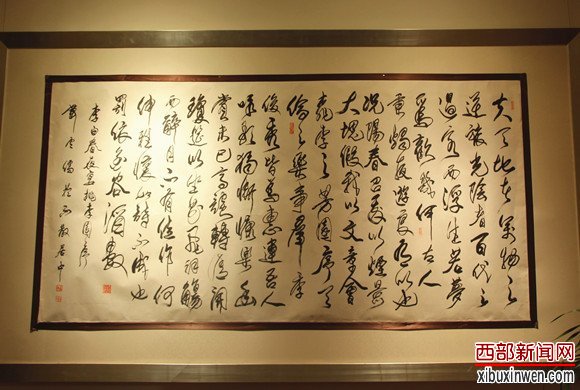 夫天地者萬物之
逆旅光陰者百代之
過客而浮生若夢
為歡幾何古人
秉燭夜遊良有以也
況陽春召我以煙景
大塊假我以文章會
桃李之芳園序天
倫之樂事群季
俊秀皆為惠連吾人
詠歌獨慚康樂幽
賞未已高談轉清開
瓊筵以坐花飛羽觴
而醉月不有佳作何
伸雅懷如詩不成也
罰依金谷酒數
李白春夜宴桃李園序
西部新闻网
xibuxinwen.com